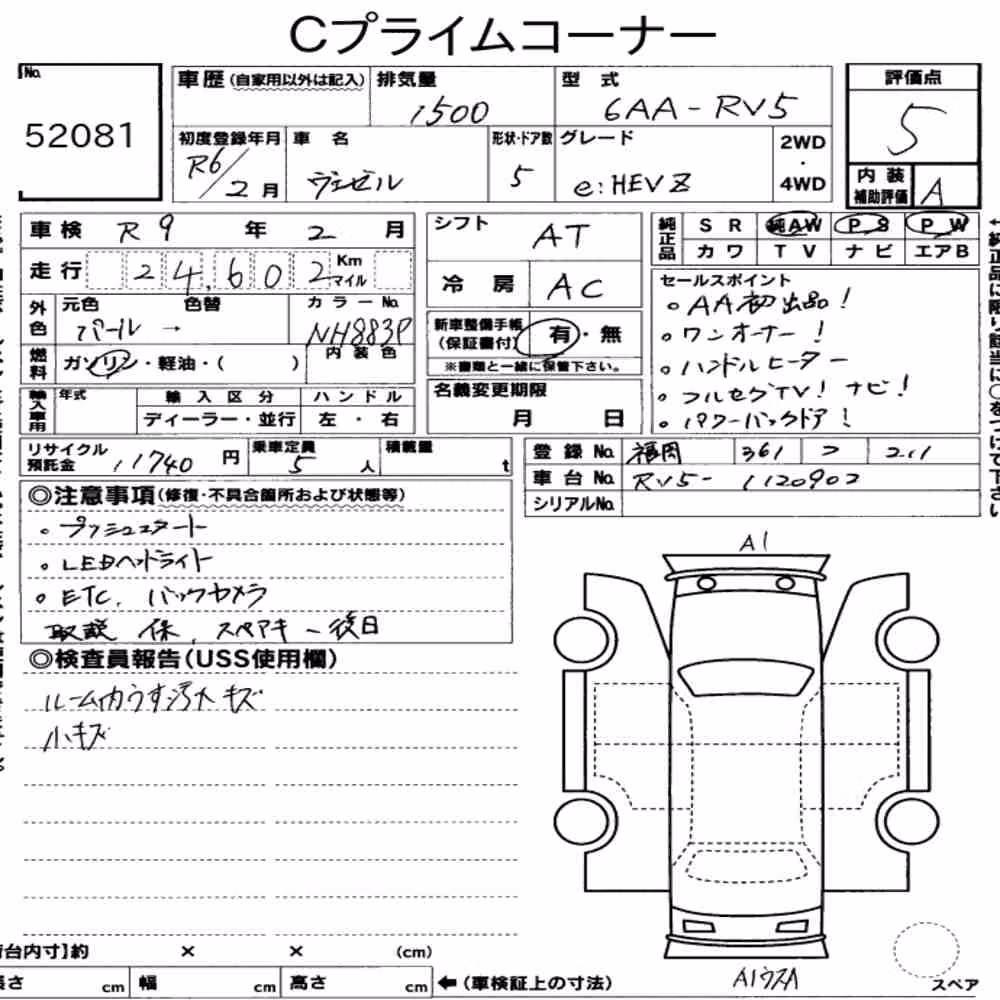 Cプライムコーナー
No.
52081
車歴(自家用以外は記入) 排気量 1500 型式 6AA-RV5
評価点 5
初度登録年月 R6/2月 車名 ヴェゼル 形状・ドア数 5 グレード e:HEV Z 2WD・4WD
内装補助評価 A
車検 R9年 2月
走行 24,602 Km マイル
外色 元色 パール → 色替 カラーNo. NH883P
燃料 ガソリン・軽油・( ) 内装色
輸入車用 年式 輸入区分 ハンドル
ディーラー・並行 左・右
シフト AT
冷房 AC
新車整備手帳(保証書付) 有・無
※書類と一緒に保管下さい。
名義変更期限
月 日
純正品 SR 純AW PS PW
カワ TV ナビ エアB
セールスポイント
。AA初出品!
。ワンオーナー!
。ハンドルヒーター
。フルセグTV! ナビ!
。パワーバックドア!
リサイクル預託金 11740円 乗車定員 5人 積載量 t
登録No. 福岡 361
車台No. RV5-1120902
シリアルNo.
◎注意事項(修復・不具合箇所および状態等)
。プッシュスタート
。LEDヘッドライト
。ETC. バックカメラ
取説 保. スペアキー後日
◎検査員報告(USS使用欄)
ルーム内うす汚れキズ
小キズ
A1
A1ウスA
スペア
荷台内寸】約 × × (cm)
長さ cm 幅 cm 高さ cm ←(車検証上の寸法)